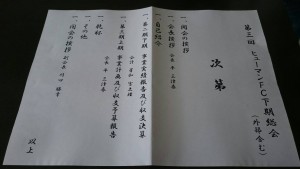 第三回 ヒューマンFC下期総会
(外部含む)
次第
一、開会の挨拶
一、会長挨拶
一、自己紹介
一、第二期下期 事業実績報告及び収支決算
一、第三期上期 事業計画及び収支予算報告
一、乾杯
一、その他
一、閉会の挨拶
以上